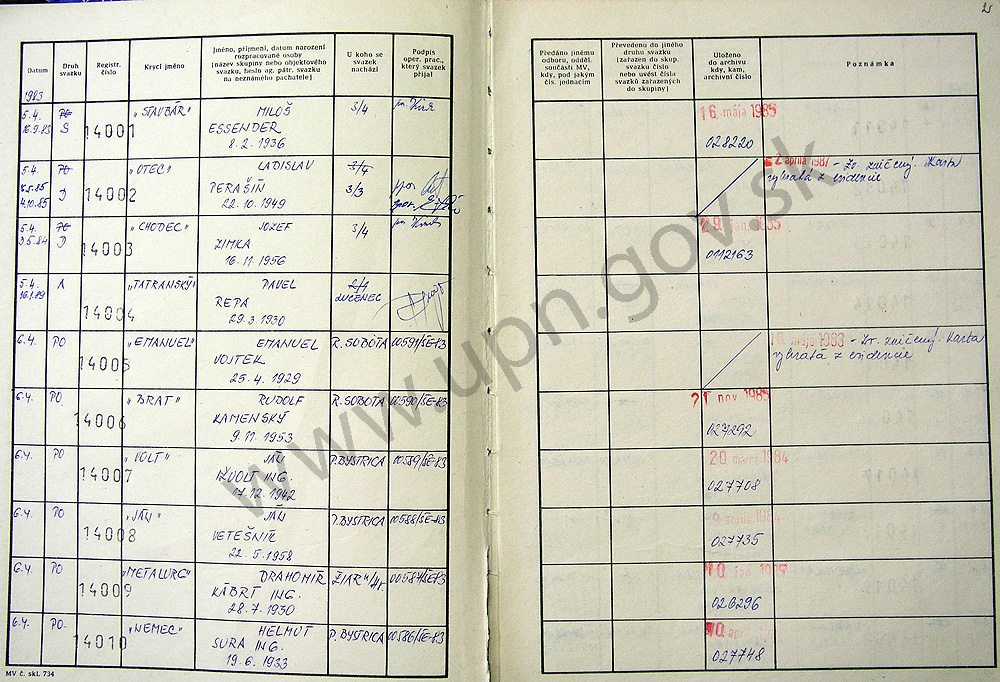 25
Datum
Druh svazku
Registr. číslo
Krycí jméno
Jméno, příjmení, datum narození
rozpracované osoby
(název skupiny nebo objektového
svazku, heslo ag. pátr. svazku
na neznámého pachatele)
U koho se
svazek
nachází
Podpis
oper. prac.,
který svazek
přijal
Předáno jinému
odboru, odděl.
součásti MV,
kdy, pod jakým
čís. jednacím
Převedeno do jiného
druhu svazku
(zařazen do skup.
svazku číslo
nebo uvést čísla
svazků zařazených
do skupiny)
Uloženo
do archivu
kdy, kam,
archivní číslo
Poznámka
1983
5.4. PO "STAVBÁR" MILOŠ 3/4
S 14001 ESSENDER
8.2.1936
16. mája 1985
028220
5.4. PO "OTEC" LADISLAV 3/4
D 14002 PERAŠÍN 3/3
4.10.85 22.10.1949
apríla 1987 - Zv. zničený. Karta
vybratá z evidencie
5.4. PO "CHODEC" JOZEF 3/4
D 14003 ZIMKA
16.11.1956
0112163
5.4. A "TATRANSKÝ" PAVEL
16.1.89 14004 REPA LUČENEC
29.3.1930
6.4. PO "EMANUEL" EMANUEL R. SOBOTA 00591/SE-83
14005 VOJTEK
25.4.1929
mája 1983 - Zv. zničený. Karta
vybratá z evidencie
6.4. PO "BRAT" RUDOLF R. SOBOTA 00590/SE-83
14006 KAMENSKÝ
9.11.1953
21 nov 1985
027292
6.4. PO "VOLT" JÁN P. BYSTRICA 00589/SE-83
14007 IŽVOLT ING.
17.12.1942
20. marca 1984
027708
6.4. PO "JÁN" JÁN P. BYSTRICA 00588/SE-83
14008 VETEŠNÍK
22.5.1958
027735
6.4. PO "METALURG" DRAHOMÍR ŽIAR n/Hr. 00587/SE-83
14009 KÁBRT ING.
28.7.1930
026296
6.4. PO. "NEMEC" HELMUT P. BYSTRICA 00586/SE-83
14010 SURA ING.
19.6.1933
027748
MV č. skl. 734
www.upn.gov.sk